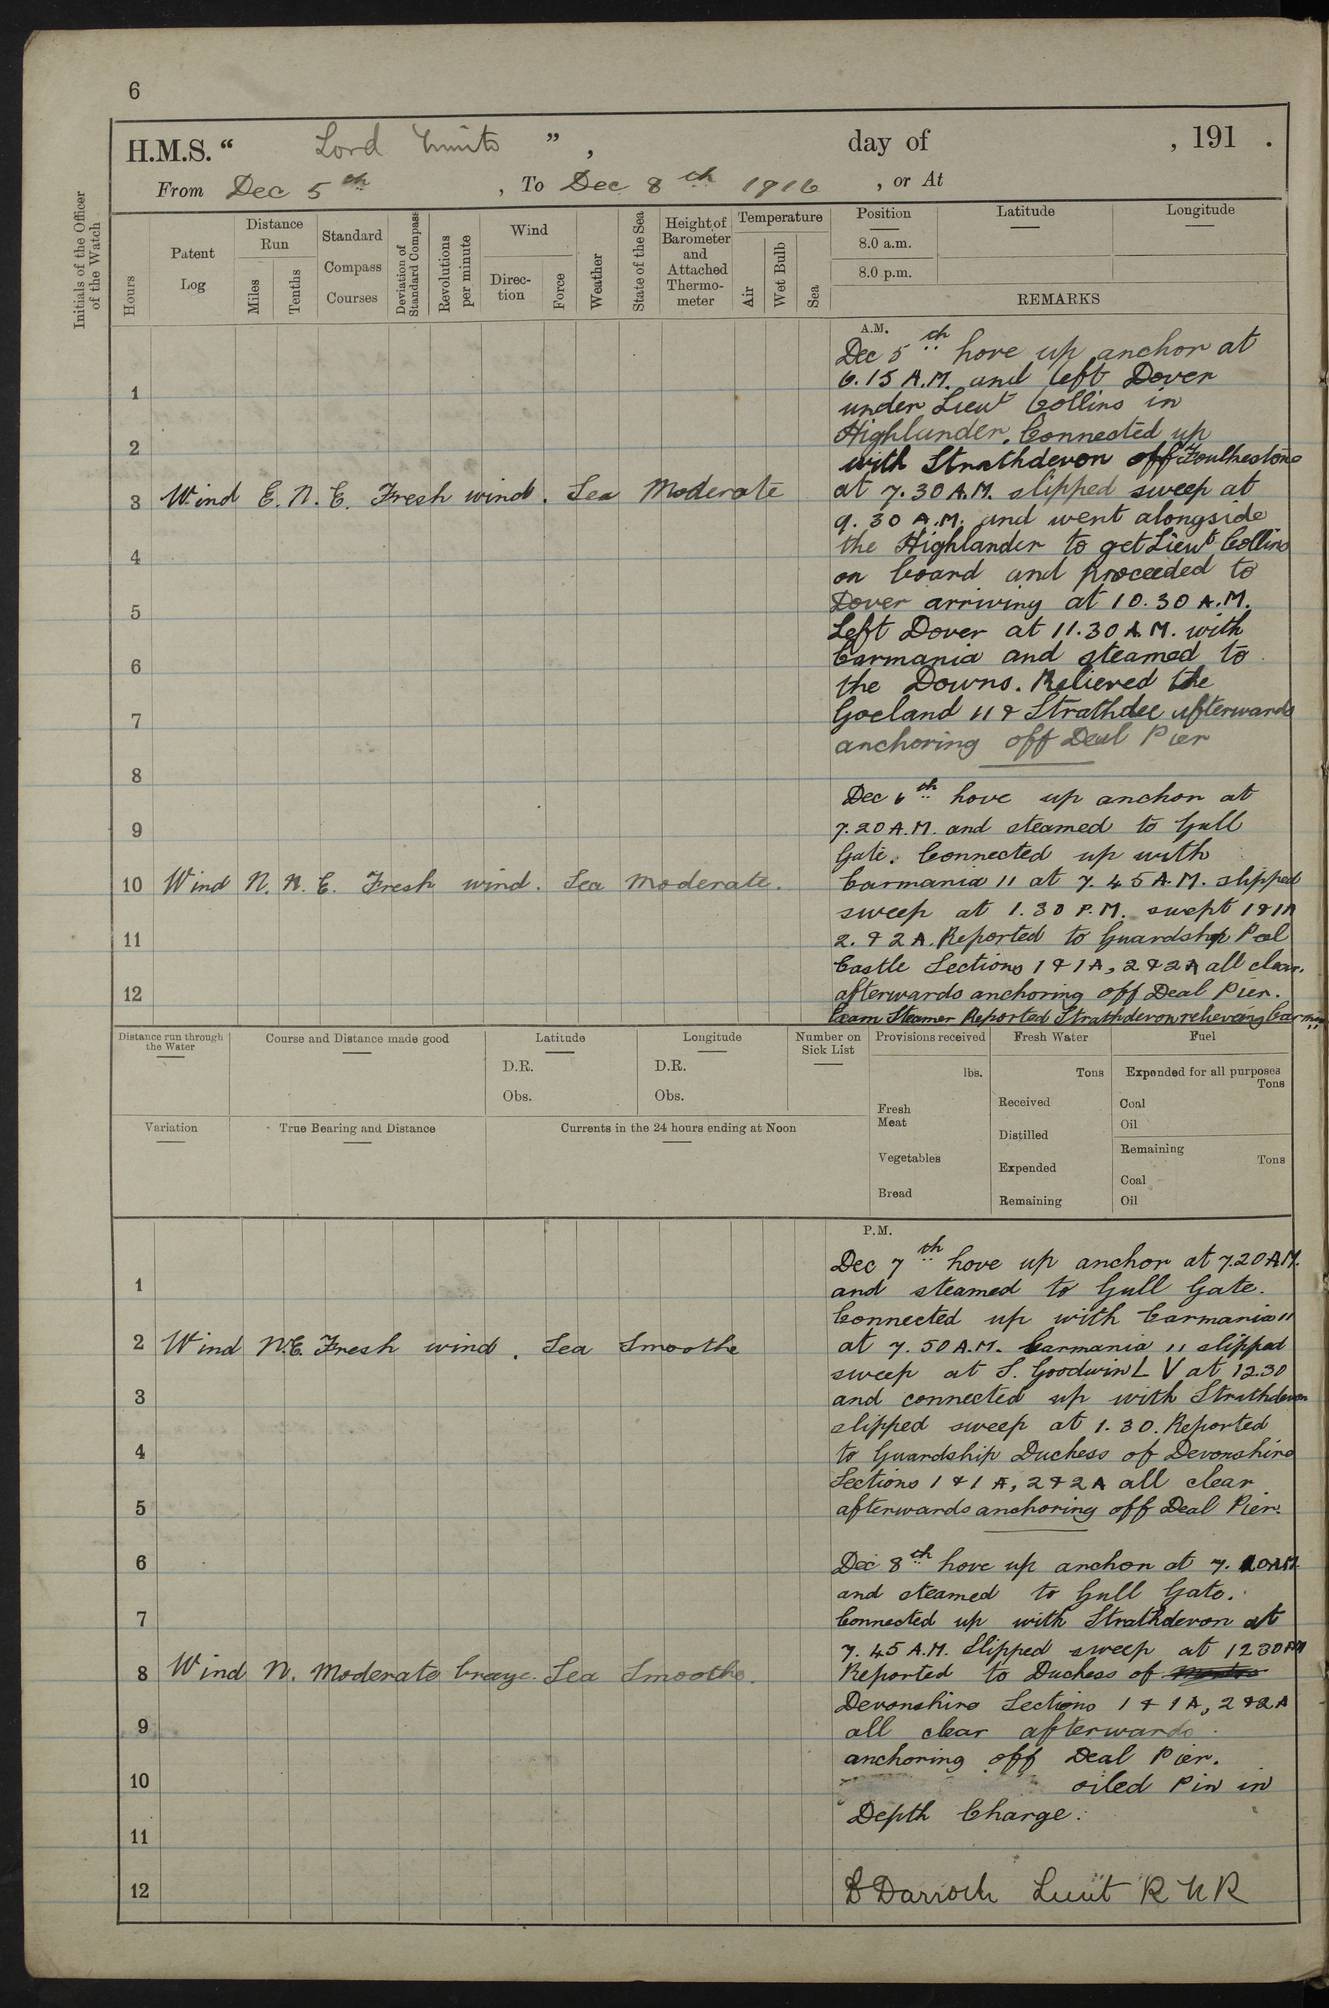 6
H.M.S. “ Lord Minto ” , day of , 191 .
From Dec 5th , To Dec 8th 1916 , or At
Initials of the Officer of the Watch
Hours
Patent Log
Distance Run
Miles
Tenths
Standard Compass Courses
Deviation of Standard Compass
Revolutions per minute
Wind
Direc-tion
Force
Weather
State of the Sea
Height of Barometer and Attached Thermo-meter
Temperature
Air
Wet Bulb
Sea
Position
8.0 a.m.
8.0 p.m.
Latitude
Longitude
REMARKS
A.M.
Dec 5th hove up anchor at
6.15 A.M. and left Dover
1
under Lieut Collins in
Highlander. Connected up
2
with Strathdevon off Foulkestone
3 Wind E. N. E. Fresh wind. Sea Moderate
at 7.30 A.M. slipped sweep at
9.30 A.M. and went alongside
the Highlander to get Lieut Collins
4
on board and proceeded to
Dover arriving at 10.30 A.M.
5
Left Dover at 11.30 A.M. with
Carmania and steamed to
6
the Downs. Relieved the
Goeland 11 & Strathdee afterwards
7
anchoring off Deal Pier
8
Dec 6th hove up anchor at
7.20 A.M. and steamed to Gull
9
Gate. Connected up with
10 Wind N. N. E. Fresh wind. Sea moderate.
Carmania 11 at 7.45 A.M. slipped
sweep at 1.30 P.M. swept 1 & 1A
11
2. & 2A. Reported to Guardship Peel
Castle Sections 1 & 1A, 2 & 2A all clear.
12
afterwards anchoring off Deal Pier.
Exam Steamer Reported Strathdevon relieving Carmania
Distance run through the Water
Course and Distance made good
Latitude
D.R.
Obs.
Longitude
D.R.
Obs.
Number on Sick List
Provisions received
lbs.
Fresh Meat
Vegetables
Bread
Fresh Water
Tons
Received
Distilled
Expended
Remaining
Fuel
Expended for all purposes
Tons
Coal
Oil
Remaining
Tons
Coal
Oil
Variation
True Bearing and Distance
Currents in the 24 hours ending at Noon
P.M.
Dec 7th hove up anchor at 7.20 AM.
1
and steamed to Gull Gate.
Connected up with Carmania 11
2 Wind N.E. Fresh wind. Sea Smoothe
at 7.50 A.M. Carmania 11 slipped
sweep at S. Goodwin L V at 12.30
3
and connected up with Strathdevon
slipped sweep at 1.30. Reported
4
to Guardship Duchess of Devonshire
Sections 1 & 1A, 2 & 2A all clear
5
afterwards anchoring off Deal Pier.
6
Dec 8th hove up anchor at 7. AM.
and steamed to Gull Gate.
7
Connected up with Strathdevon at
7.45 A.M. Slipped sweep at 12 30 PM
8 Wind N. Moderate breaye. Sea Smoothe.
Reported to Duchess of
Devonshire Sections 1 & 1A, 2 & 2A
9
all clear afterwards
anchoring off Deal Pier.
10
oiled Pin in
Depth Charge.
11
12
D Darroch Lieut R N R